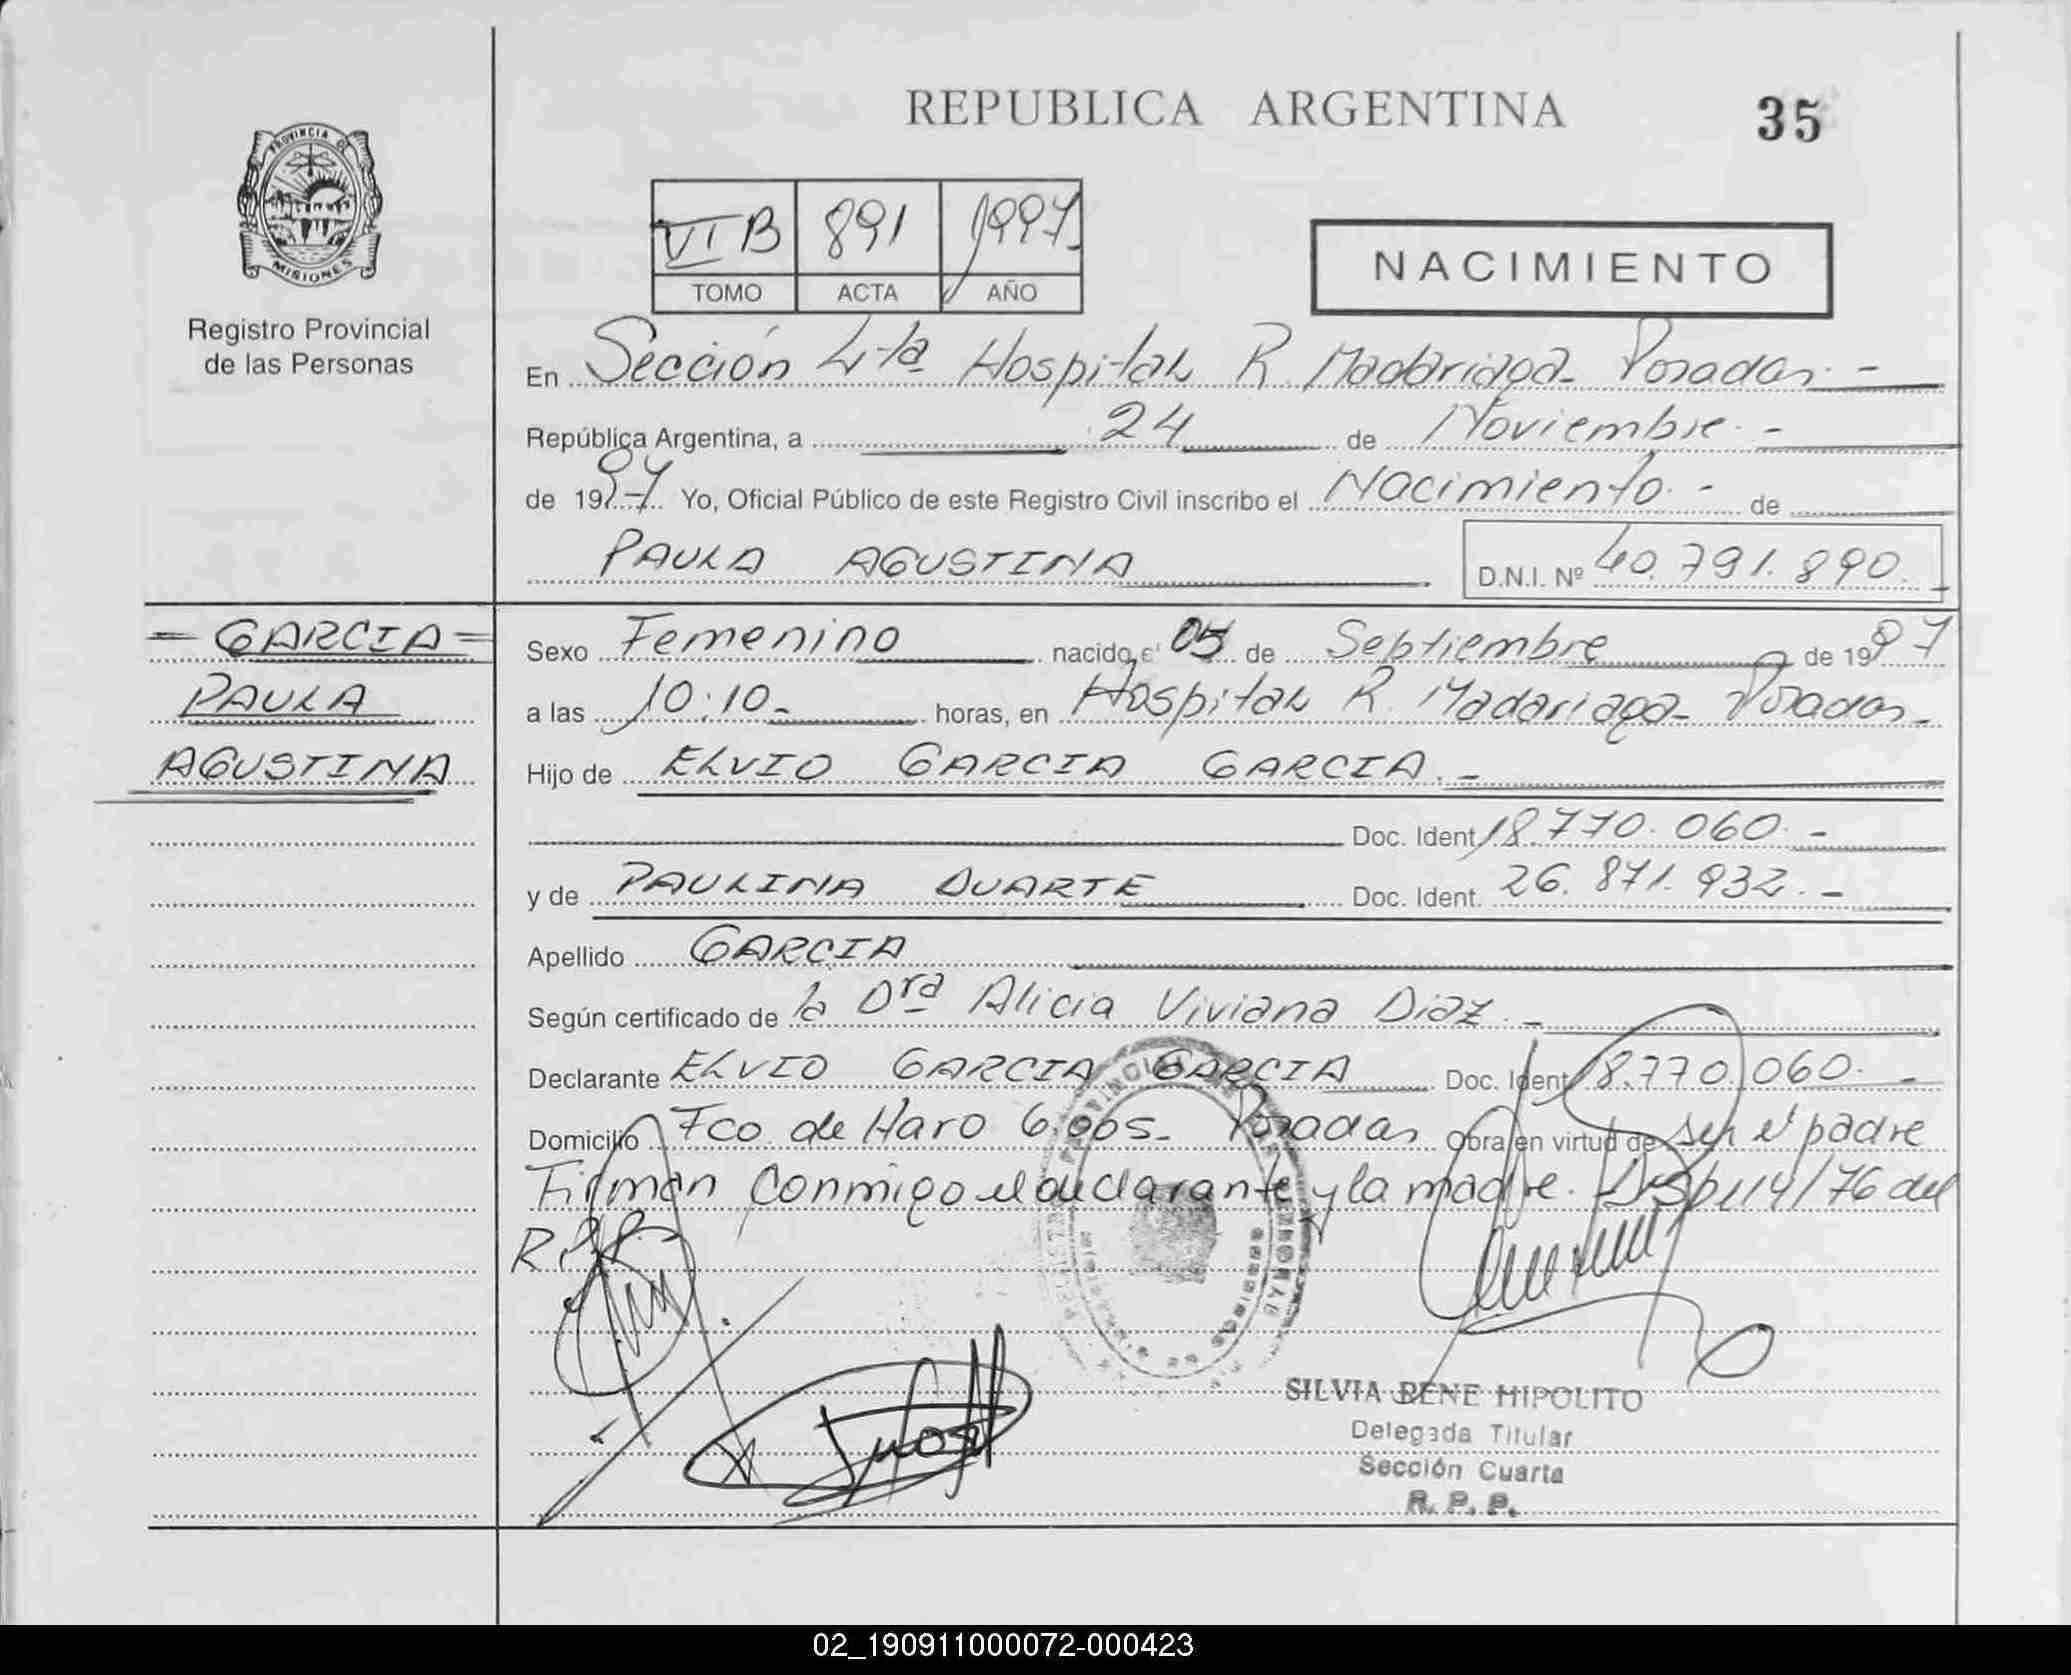 REPUBLICA ARGENTINA
35
PROVINCIA DE
MISIONES
Registro Provincial
de las Personas
VI B 891 1997
TOMO ACTA AÑO
NACIMIENTO
En Sección 4ta Hospital R. Madariaga Posadas.-
República Argentina, a 24 de Noviembre.-
de 1997 Yo, Oficial Público de este Registro Civil inscribo el Nacimiento.- de
PAULA AGUSTINA D.N.I. Nº 40.791.890.-
= GARCIA =
PAULA
AGUSTINA
Sexo Femenino nacido el 05 de Septiembre de 1997
a las 10:10.- horas, en Hospital R. Madariaga- Posadas-
Hijo de ELVIO GARCIA GARCIA.-
Doc. Ident. 18.770.060.-
y de PAULINA DUARTE Doc. Ident. 26.871.932.-
Apellido GARCIA
Según certificado de la Dra Alicia Viviana Diaz.-
Declarante ELVIO GARCIA GARCIA Doc. Ident. 18.770.060.-
Domicilio Fco. de Haro Posadas Obra en virtud de ser el padre
Firman conmigo el declarante y la madre. Disp 114/76 del
R.P.P.
SILVIA RENE HIPOLITO
Delegada Titular
Sección Cuarta
R. P. P.
02_190911000072-000423